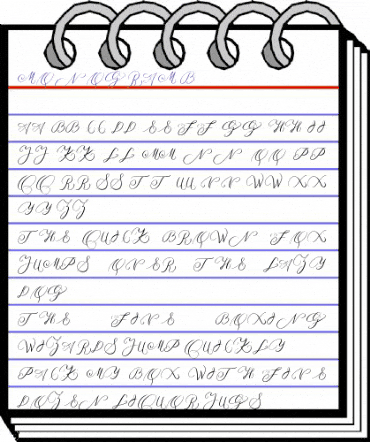 MONOGRAMB
AA BB CC DD EE FF GG HH II
JJ KK LL MM NN OO PP
QQ RR SS TT UU VV WW XX
YY ZZ
THE QUICK BROWN FOX
JUMPS OVER THE LAZY
DOG
THE FIVE BOXING
WIZARDS JUMP QUICKLY
PACK MY BOX WITH FIVE
DOZEN LIQUOR JUGS